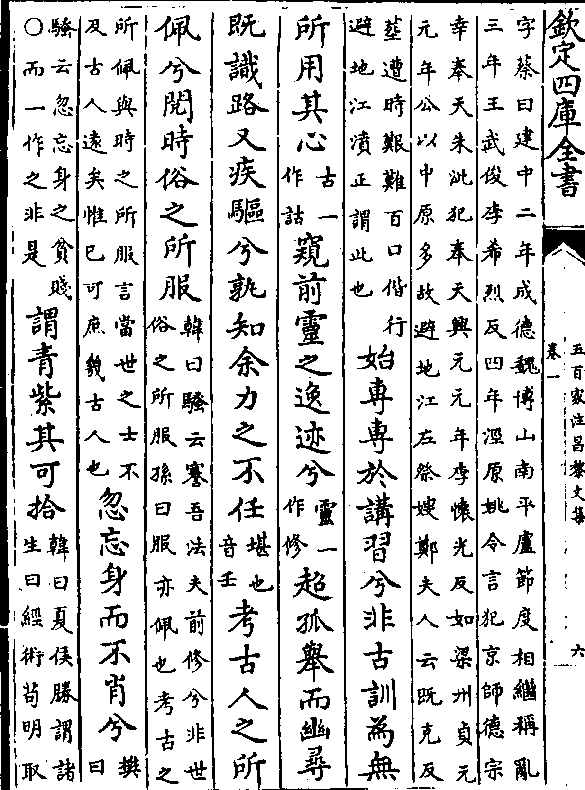 欽定四庫全書
五百家注昌黎文集
卷一
六
字蔡曰建中二年成德魏博山南平盧節度相繼稱亂
三年王武俊李希烈反四年涇原姚令言犯京師德宗
幸奉天朱泚犯奉天興元元年李懷光反如梁州貞元
元年公以中原多故避地江左祭嫂鄭夫人云既克反
葬遭時艱難百口偕行
避地江濆正謂此也
始專專於講習兮非古訓為無
所用其心
古一
作詁
窺前靈之逸迹兮
靈一
作修
超孤舉而幽尋
既識路又疾驅兮孰知余力之不任
堪也
音壬
考古人之所
佩兮閱時俗之所服
韓曰騷云謇吾法夫前修兮非世
俗之所服孫曰服亦佩也考古之
所佩與時之所服言當世之士不
及古人遠矣惟已可庶幾古人也
忽忘身而不肖兮
樊
曰
騷云忽忘身之貧賤
○而一作之非是
謂青紫其可拾
韓曰夏侯勝謂諸
生曰經術茍明取